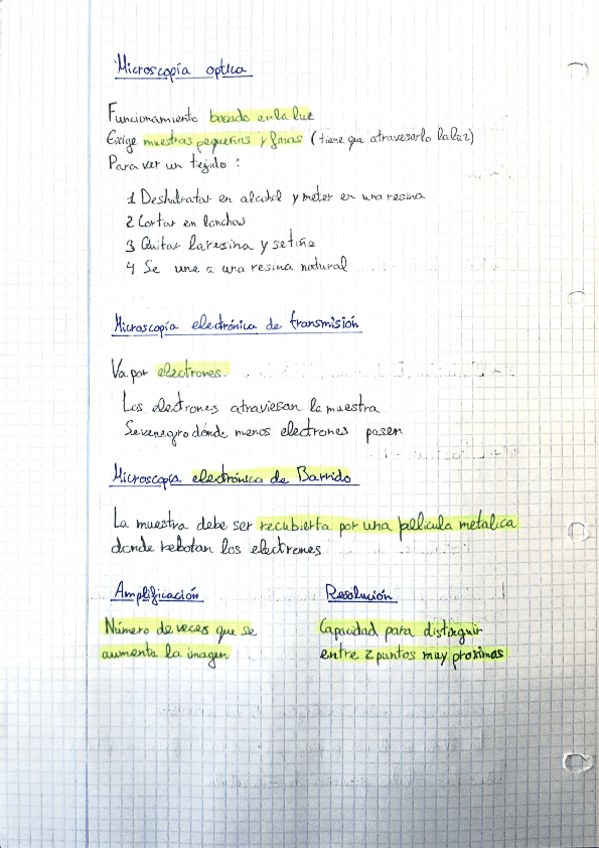 Microscopía optica
Funcionamiento basado en la luz
Exige muestras pequeñas y finas (tiene que atravesarlo la luz)
Para ver un tejido :
1 Deshidratar en alcohol y meter en una resina
2 Cortar en lonchas
3 Quitar la resina y se tiñe
4 Se une a una resina natural
Microscopía electrónica de transmisión
Va por electrones.
Los electrones atraviesan la muestra
Se ve negro dónde menos electrones pasen
Microscopía electrónica de Barrido
La muestra debe ser recubierta por una película metalica
donde rebotan los electrones
Amplificación
Número de veces que se
aumenta la imagen
Resolución
Capacidad para distinguir
entre 2 puntos muy proximas